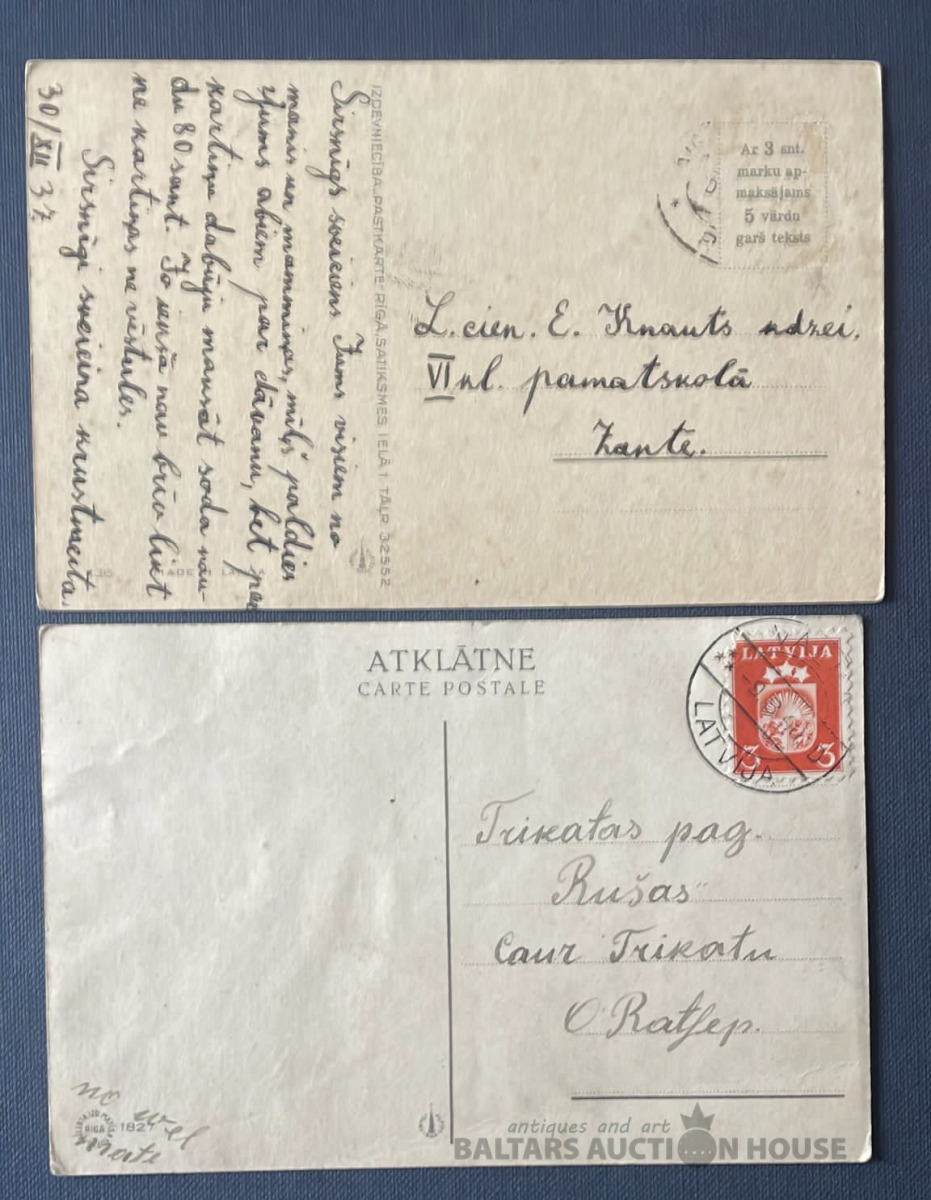 Sirsnīgs sveiciens Jums visiem no
manis un mammiņas, mīļš paldies
Jums abiem par dāvanu, bet par
kartiņu dabūju maksāt soda nau-
du 80 sant. Jo iekšā nav brīv likt
ne kartiņas ne vēstules.
Sirsnīgi sveicina krustmeita.
30/XII 37.
IZDEVNIECĪBA "PASTKARTE" RĪGĀ, SATIKSMES IELĀ 1 TĀLR 32552
Ar 3 snt.
marku ap-
maksājams
5 vārdu
garš teksts
L.cien. E. Knauts ndzei.
VI kl. pamatskolā
Zante.
ATKLĀTNE
CARTE POSTALE
LATVIJA
3 3
LATVIJA
Trikatas pag.
Rušas"
Caur Trikatu
O Ratsep.
no
RIGA
182
antiques and art
BALTARS AUCTION HOUSE